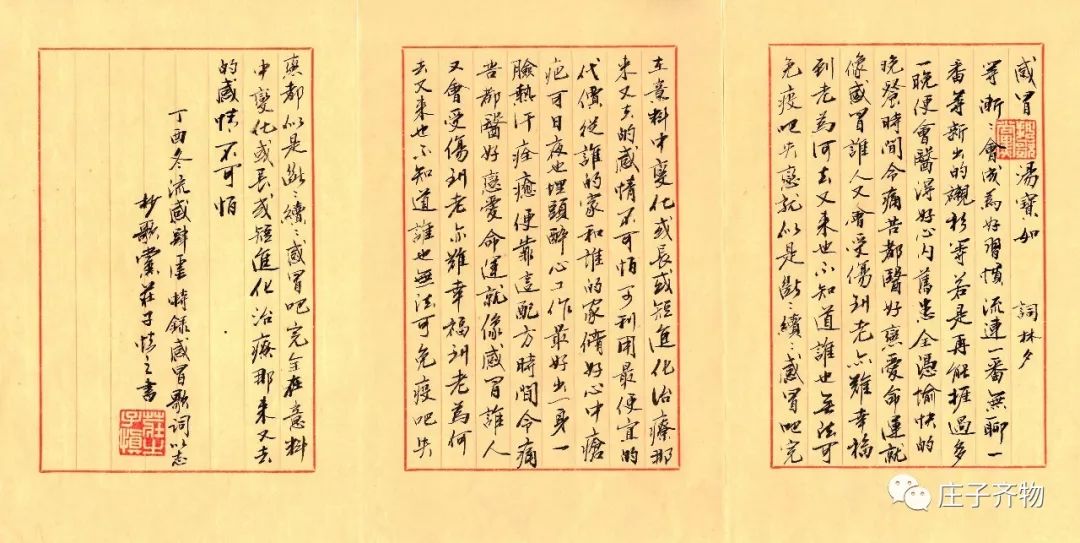 感冒 湯寶如 詞林夕
等漸〻會成為好習慣流連一番無聊一
番等断出的襯衫等若是再能捱過多
一晚便會醫得好心內舊患全憑愉快的
晚餐時間令痛苦都醫好戀愛命運就
像感冒誰人又會受傷到老亦難幸福
到老為何去又來也不知道誰也無法可
免疫吧失戀就似是斷〻續〻感冒吧完
在意料中變化或長或短進化治療那
來又去的感情不可怕可利用最便宜的
代價從誰的家和誰的家備好心中瘡
疤可日夜也埋頭醉心工作最好出一身一
臉熱汗痊癒便靠這配方時間令痛
苦都醫好戀愛命運就像感冒誰人
又會受傷到老亦難幸福到老為何
去又來也不知道誰也無法可免疫吧失
戀都似是斷〻續〻感冒吧完全在意料
中變化或長或短進化治療那來又去
的感情不可怕
丁酉冬流感肆虐時錄感冒歌詞以志
抄歌賞莊子慎之書
庄子齐物